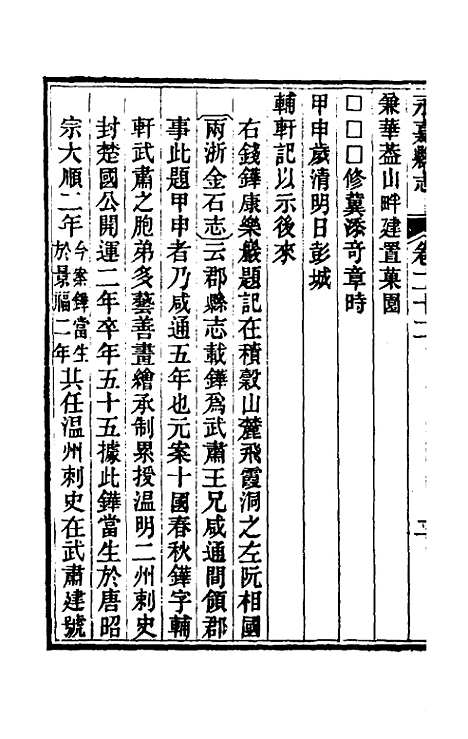 永嘉縣志 卷二十二
兼華葢山畔建置菓園
□□□修冀添奇章時
甲申歲清明日彭城
輔軒記以示後來
右錢鏵康樂巖題記在積穀山麓飛霞洞之左阮相國
兩浙金石志云郡縣志載鏵爲武肅王兄咸通間領郡
事此題甲申者乃咸通五年也元案十國春秋鏵字輔
軒武肅之胞弟多藝善畫繪承制累授温明二州刺史
封楚國公開運二年卒年五十五據此鏵當生於唐昭
宗大順二年今案鏵當生於景福二年其任温州刺史在武肅建號